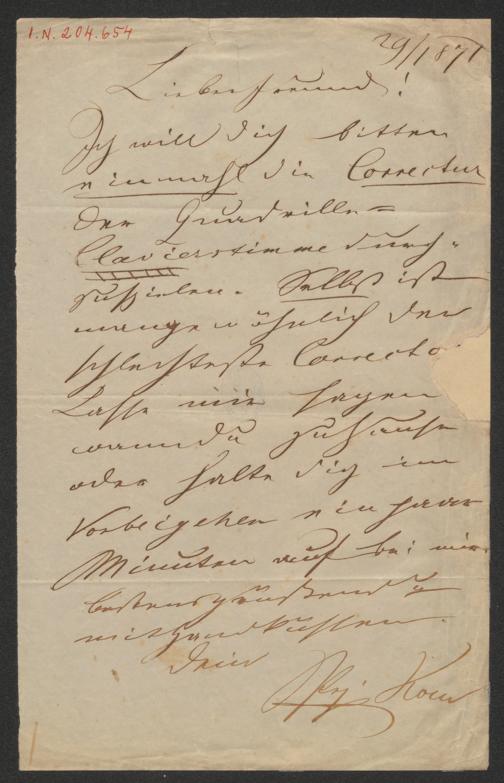 I.N. 204.654
29/1 871
Lieber Freund!
Ich will dich bitten
einmahl die Correctur
der Quadrille=
Clavierstimme durch-
zuspielen. Selbst ist
man gewöhnlich der
schlechteste Corrector
Lasse mir sagen
wann du zuhause
oder halte dich im
Vorbeigehen ein paar
Minuten auf bei mir.
bestens grüßend u
mit Handküssen.
dein